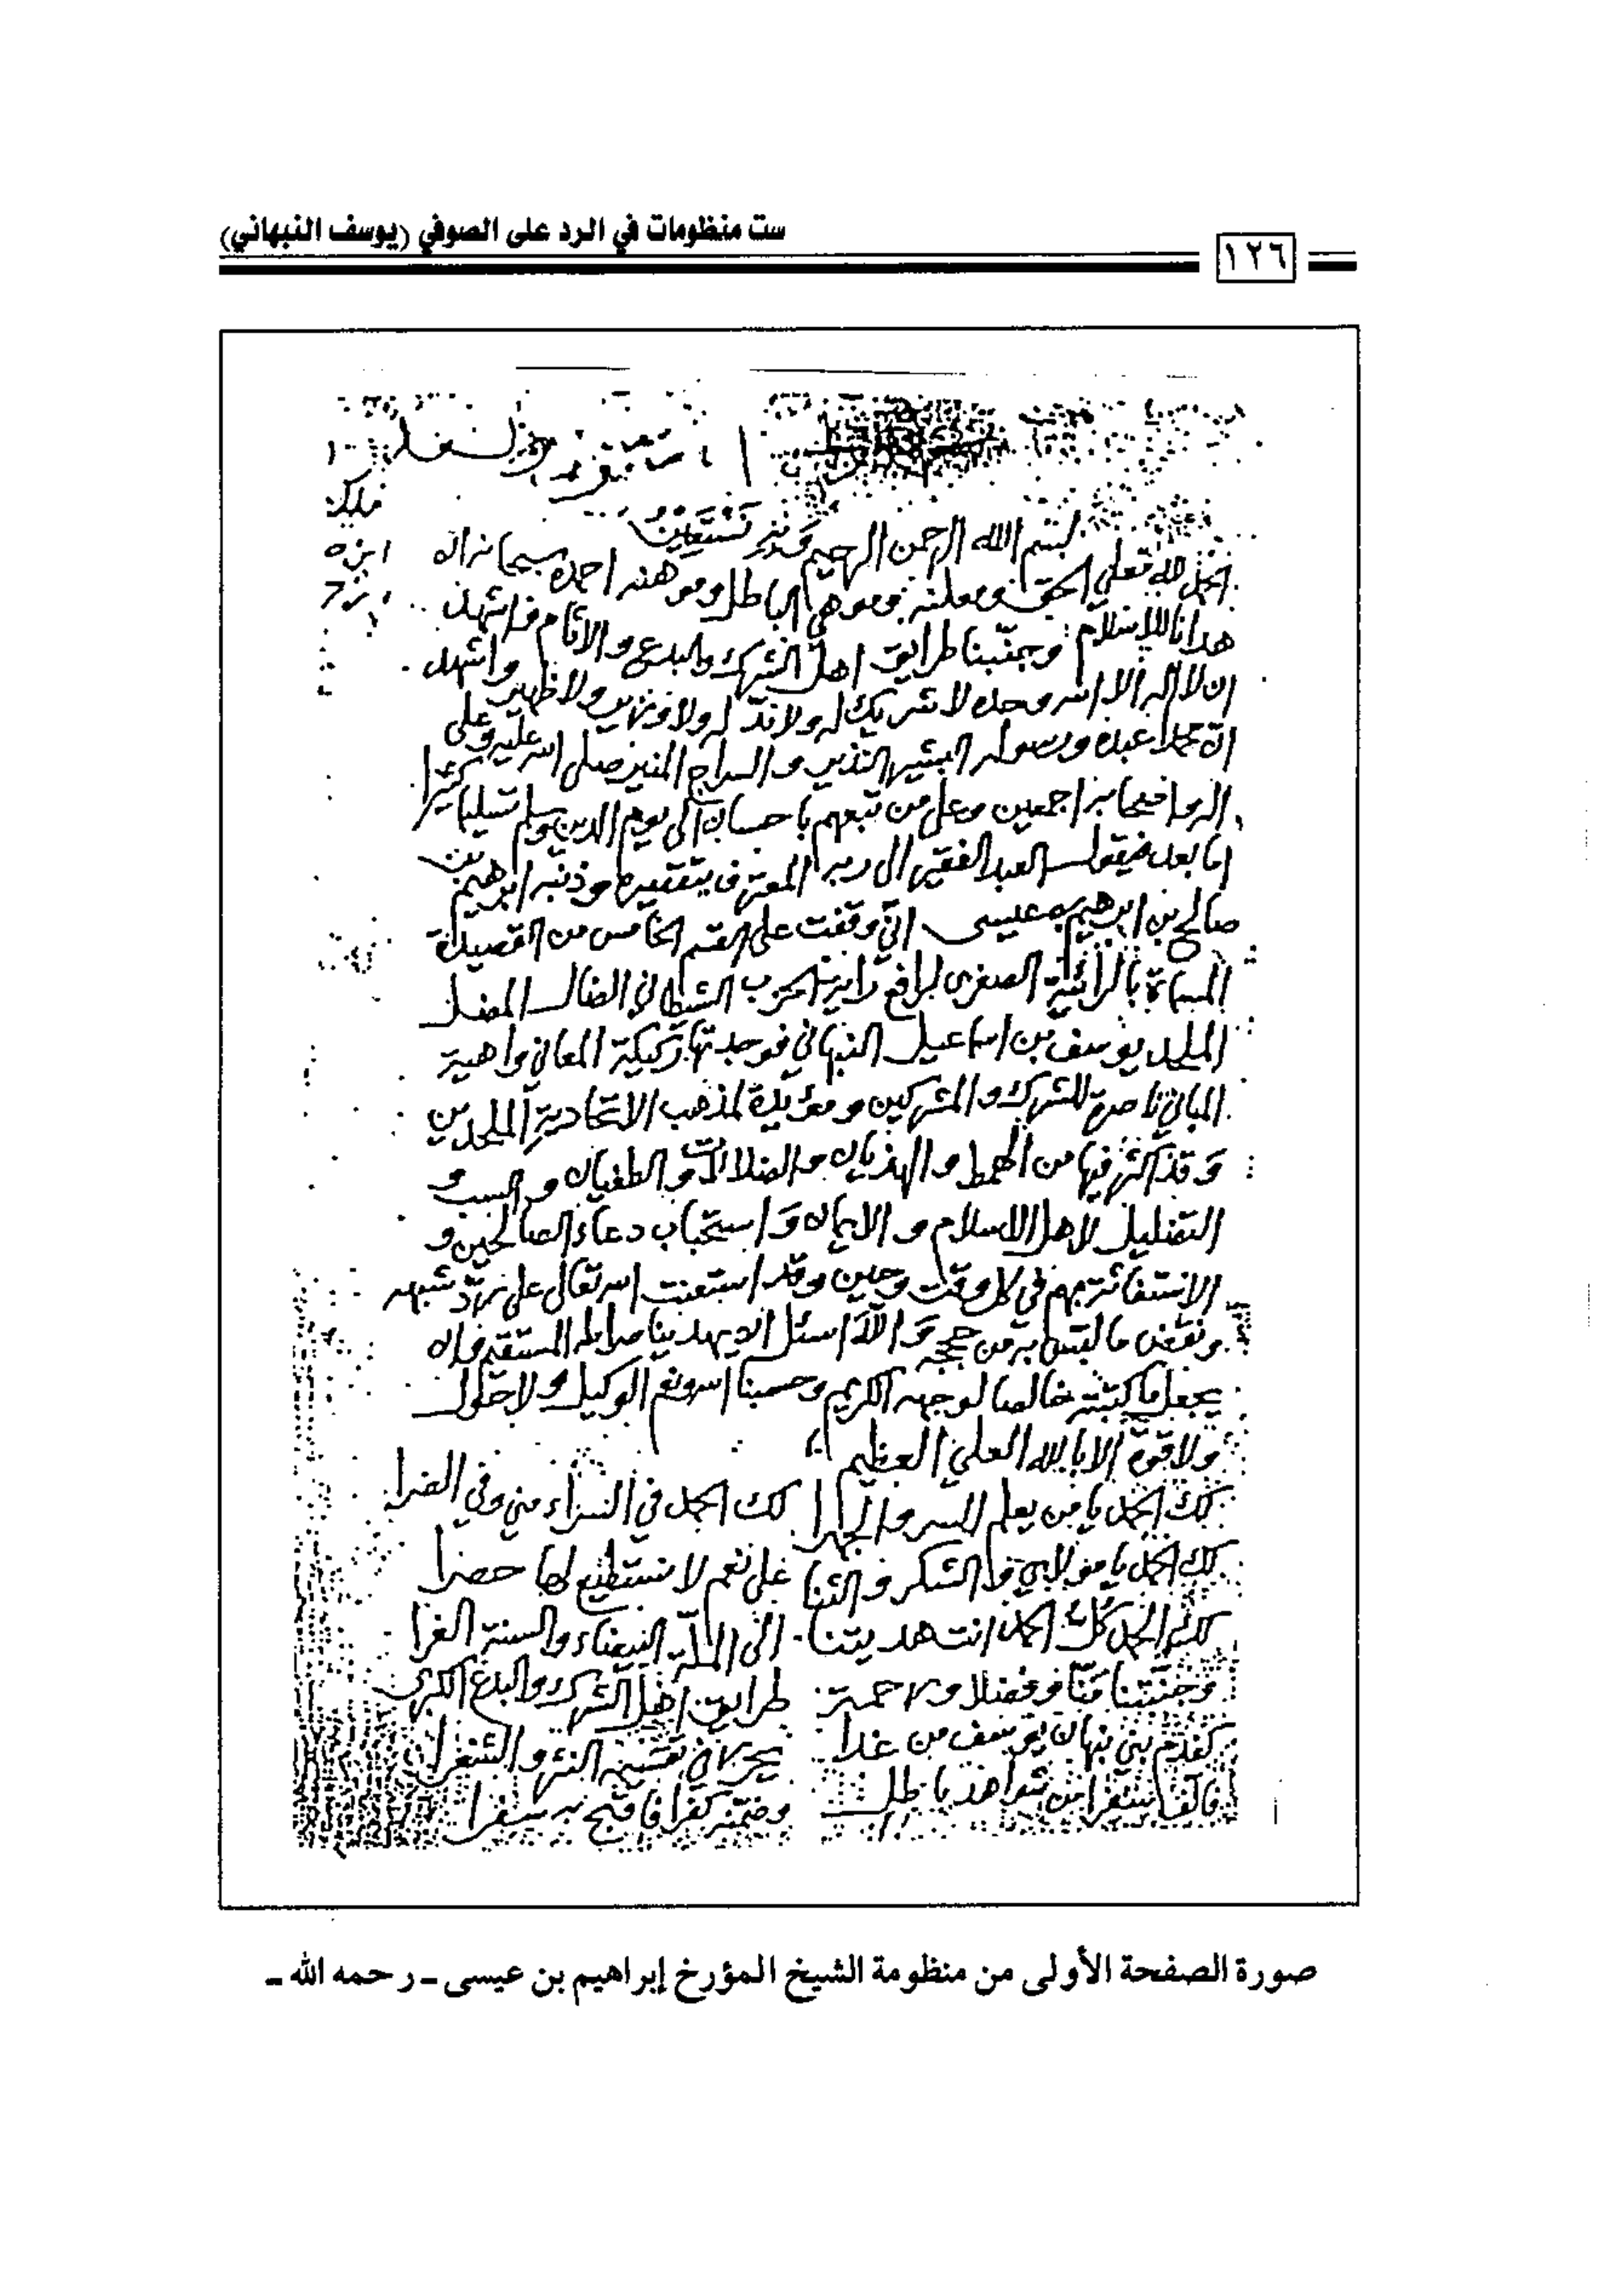 ست منظومات في الرد على الصوفي (يوسف النبهاني)
١٢٦
بسم الله الرحمن الرحيم وبه نستعين
الحمد لله معلي الحق ومعلنه وموهي الباطل وموهنه احمده سبحانه ان
هدانا للاسلام وجنبنا طرايق اهل الشرك والبدع والاثام واشهد
ان لا اله الا الله وحده لا شريك له ولا ند له ولا وزير ولا ظهير واشهد
ان محمدا عبده ورسوله البشير النذير والسراج المنير صلى الله عليه وعلى
اله واصحابه اجمعين وعلى من تبعهم باحسان الى يوم الدين وسلم تسليما كثيرا
اما بعد فيقول العبد الفقير الى ربه المعترف بتقصيره وذنبه ابرهيم بن
صالح بن ابرهيم بن عيسى اني وقفت على القسم الخامس من القصيدة
المسماة بالرائية الصغرى لرافع راية الحزب الشيطاني الضال المضل
الملحد يوسف بن اسماعيل النبهاني فوجدتها ركيكة المعاني واهية
المباني ناصرة للشرك والمشركين ومؤيدة لمذهب الاتحادية الملحدين
وقد اكثر فيها من الهمط والهذيان والضلالات والطغيان والسب و
التضليل لاهل الاسلام والايمان واستحباب دعاء الصالحين و
الاستغاثة بهم في كل وقت وحين وقد استعنت الله تعالى على رد شبهه
ونقض ما لبس به من حججه والله اسئل ان يهدينا صراطه المستقيم وان
يجعل ما كتبته خالصا لوجهه الكريم وحسبنا الله ونعم الوكيل ولا حول
ولا قوة الا بالله العلي العظيم
لك الحمد يا من يعلم السر والجهرا لك الحمد في السراء مني وفي الضرا
لك الحمد يا مولاي والشكر والثنا على نعم لا نستطيع لها حصرا
لك الحمد لك الحمد انت هديتنا الى الملة البيضاء والسنة الغرا
وجنبتنا منا وفضلا ورحمة طرايق اهل الشرك والبدع الكبرى
كفدم بني نبهان يوسف من غدا يحرر في تقسيمه النثر والشعرا
فالف سفرا من شواهد باطل وضمنه كفرا فاقبح به سفرا
صورة الصفحة الأولى من منظومة الشيخ المؤرخ إبراهيم بن عيسى ـ رحمه الله ـ